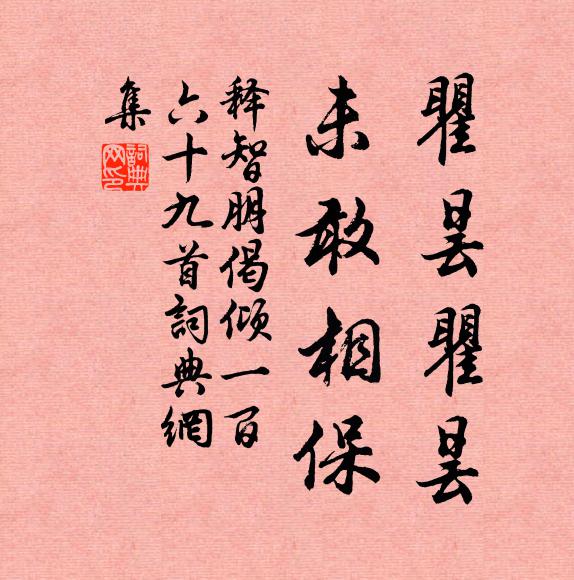 瞿昙瞿昙
未敢相保
释智朋偈倾一百
六十九首詞典網
集
詞典網印